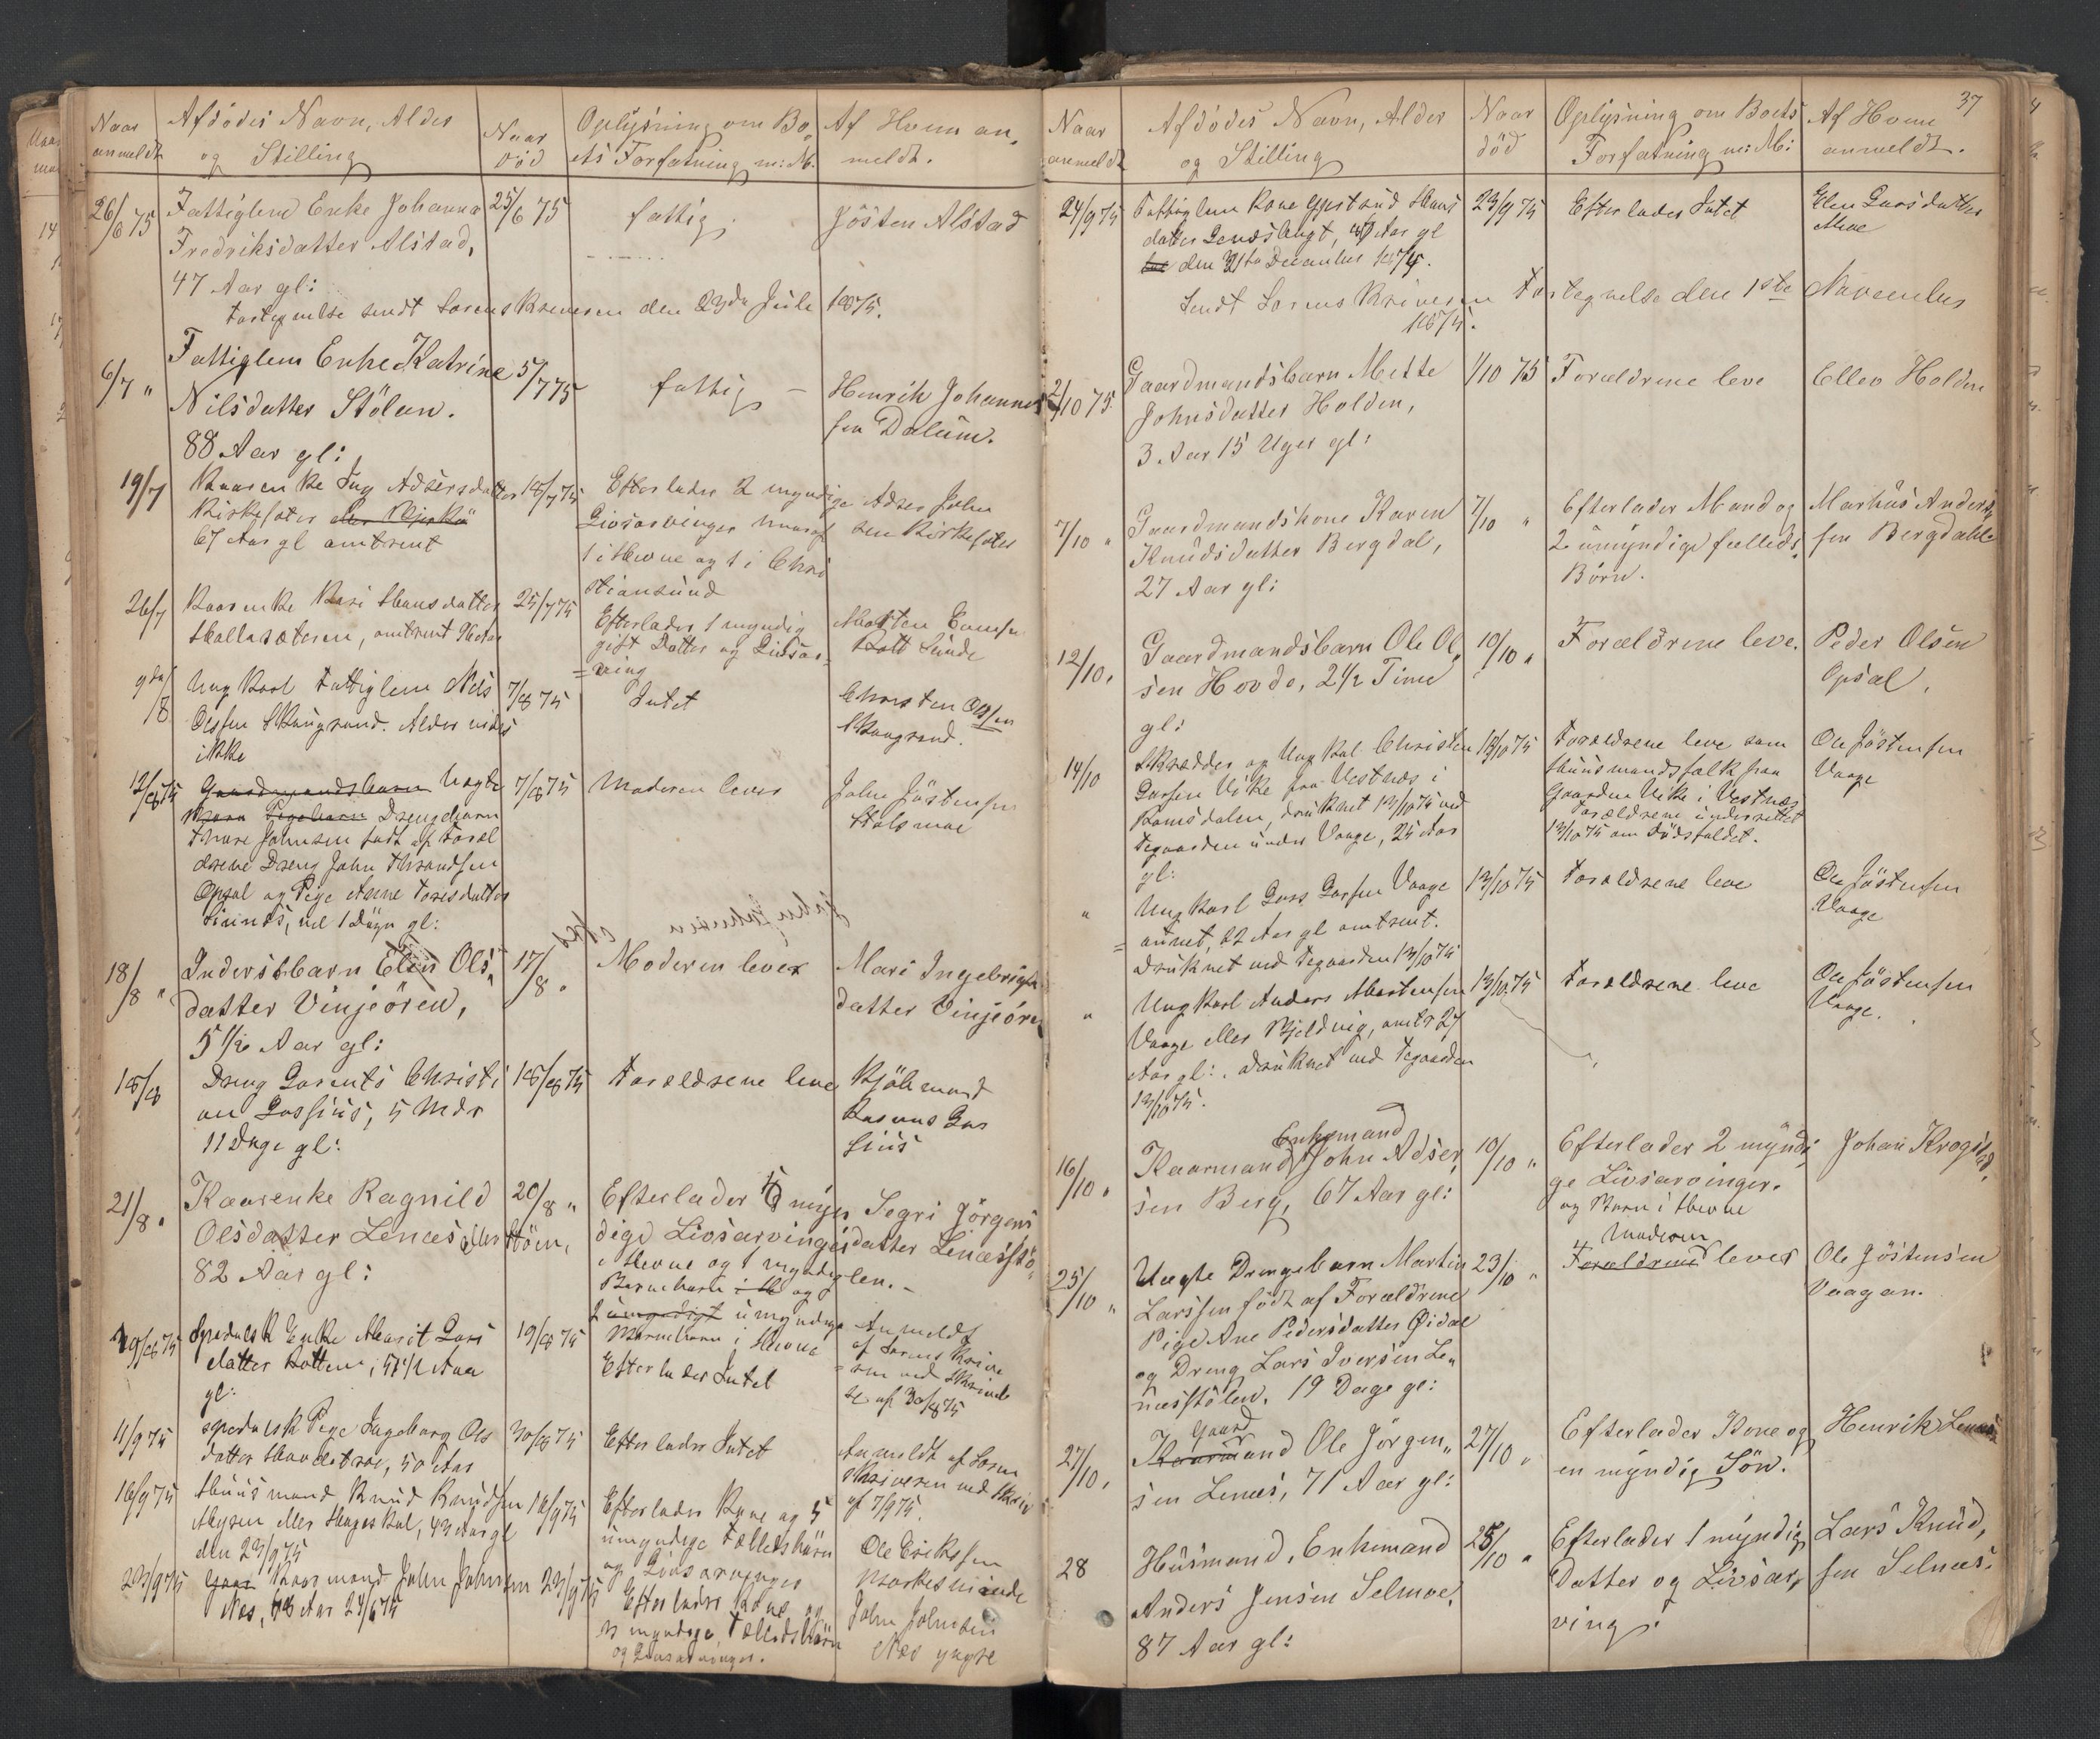 Naar
anmeldt
Afdødes Navn, Alder
og Stilling
Naar
död
Oplysning om Bo-
ets Forfatning m: M:
Af Hvem an-
meldt.
26/6 75
Fattiglem Enke Johanna
Fredriksdatter Alstad,
47 Aar gl:
25/6 75
fattig.
Jösten Alstad
Fortegnelse sendt Sorenskriveren den 23de Juli 1875.
6/7 "
Fattiglem Enke Katrine
Nilsdatter Stölan.
88 Aar gl:
5/7 75
fattig -
Henrik Johannes
sen Dalum.
19/7
Kaarenke Adsersdatter
Kirksæter
67 Aar gl omtrent
18/7 75
Efterlader 2 myndige
Livsarvinger hvoraf
1 i Hevne og 1 i Chri
stiansund
Adser John
sen Kirksæter
26/7
Kaarenke Kari Hansdatter
omtrent 96 Aar
25/7 75
Efterlader 1 myndig
gift Datter og Livsar-
=ving
Sunde
9de/8
Ungkarl Fattiglem Nils
Olssen Skaugrand. Alder vides
ikke
7/8 75
Intet
Christen Olssen
Skaugrand.
12/8 75
Gaardmandsbarn Uægte
Drengebarn
Johnsen født af Foræl
drene Dreng John Throndsen
Opsal og Pige
1 Døgn gl:
7/8 75
Moderen lever
John Jöstensen
18/8 "
Inderstbarn Elen Ols-
datter Vinjeören,
5 1/2 Aar gl:
17/8 "
Moderen lever
Mari Ingebrigts
datter Vinjeören
18/8
Dreng Lorents Christi
an Lossius, 5 Mdr
11 Dage gl:
18/8 75
Forældrene leve
Kjöbmand
Rasmus Los
sius
21/8 "
Kaarenke Ragnild
Olsdatter Lenæs eller
82 Aar gl:
20/8 "
Efterlader myn
dige Livsarvinger
i Hevne og 1 myndig
Barnebarn og
umyndige
Barnebarn i Hevne
Segri Jörgens
datter Lenæsstö-
len. -
Spedalsk Enke Marit Lars
datter Aar
gl:
19/8 75
Efterlader Intet
Anmeldt
af Sorenskrive
=ren ved Skrivel
se af 30/8 75
4/9 75
spedalsk Pige Ingeborg Ols
datter 50 Aar
30/8 75
Efterlader Intet
Anmeldt af Soren
skriveren ved Skriv
af 7/9 75.
16/9 75
Huusmand Knud Knudsen
43 Aar gl
den 23/9 75
16/9 75
Efterlader Kone og 5
umyndige Fællesbörn
og Livsarvinger
Ole Erikssen
23/9 75
Kaarmand John Johnsen
Næs,
23/9 75
Efterlader Kone og
myndige Fællesbörn
og Livsarvinger.
John Johnsen
Næs yngre
37
Naar
anmeldt
Afdödes Navn, Alder
og Stilling
Naar
död
Oplysning om Boets
Forfatning m: M:
Af Hvem
anmeldt.
24/9 75
Fattiglem Kone Hans
datter Aar gl
den 31te December 1874.
23/9 75
Efterlader Intet
Elen Larsdatter
Sendt Sorenskriveren Fortegnelse den 1ste November
1875.
2/10 75.
Gaardmandsbarn Mette
Johnsdatter Holden,
3 Aar 15 Uger gl:
1/10 75
Forældrene leve
Ellev Holden
7/10 "
Gaardmandskone Karen
Knudsdatter Bergdal,
27 Aar gl:
7/10 "
Efterlader Mand og
2 umyndige fælleds
Börn.
Markus Anders
sen Bergdahl
12/10 "
Gaardmandsbarn Ole Ol-
sen Hovde, 2 1/2 Time
gl:
10/10 "
Forældrene leve.
Peder Olsen
Opsal.
14/10
Skrædder og Ungkal Christen
Larsen Vike fra Vestnæs i
Romsdalen, druknet 13/10 75 ved
Tegaarden under Vaage, 25 Aar
gl:
13/10 75
Forældrene leve som
Huusmandsfolk paa
Gaarden Vike i Vestnæs
Forældrene underrettet
13/10 75 om Dödsfaldet.
Ole Jöstensen
Vaage
"
Ungkarl Lars Larsen Vaage
22 Aar gl omtrent.
druknet ved Tegaarden 13/10 75
13/10 75
Forældrene leve
Ole Jöstensen
Vaage
"
Ungkarl Anders Mortensen
Vaage eller omtr 27
Aar gl:. druknet ved Tegaarden
13/10 75.
13/10 75
Forældrene leve
Ole Jöstensen
Vaage.
16/10 "
Enkemand
Kaarmand John Adser-
sen Berg, 67 Aar gl:
10/10 "
Efterlader 2 myndi-
ge Livsarvinger.
og Børn i Hevne
Johan
25/10 "
Uægte Drengebarn Martin
Larssen födt af Forældrene
Pige Ane Pedersdatter Öidal
og Dreng Lars Iversen Le-
næsstölen. 19 Dage gl:
23/10 "
Moderen
Forældrene lever
Ole Jöstensen
Vaagan.
27/10 "
Gaard
Kaarmand Ole Jörgen-
sen Lenæs, 71 Aar gl:
27/10 "
Efterlader Kone og
en myndig Sön.
Henrik Lenæs
28
Husmand, Enkemand
Anders Jensen Selnæs,
87 Aar gl:
25/10 "
Efterlader 1 myndig
Datter og Livsar-
ving.
Lars Knud-
sen Selnæs.